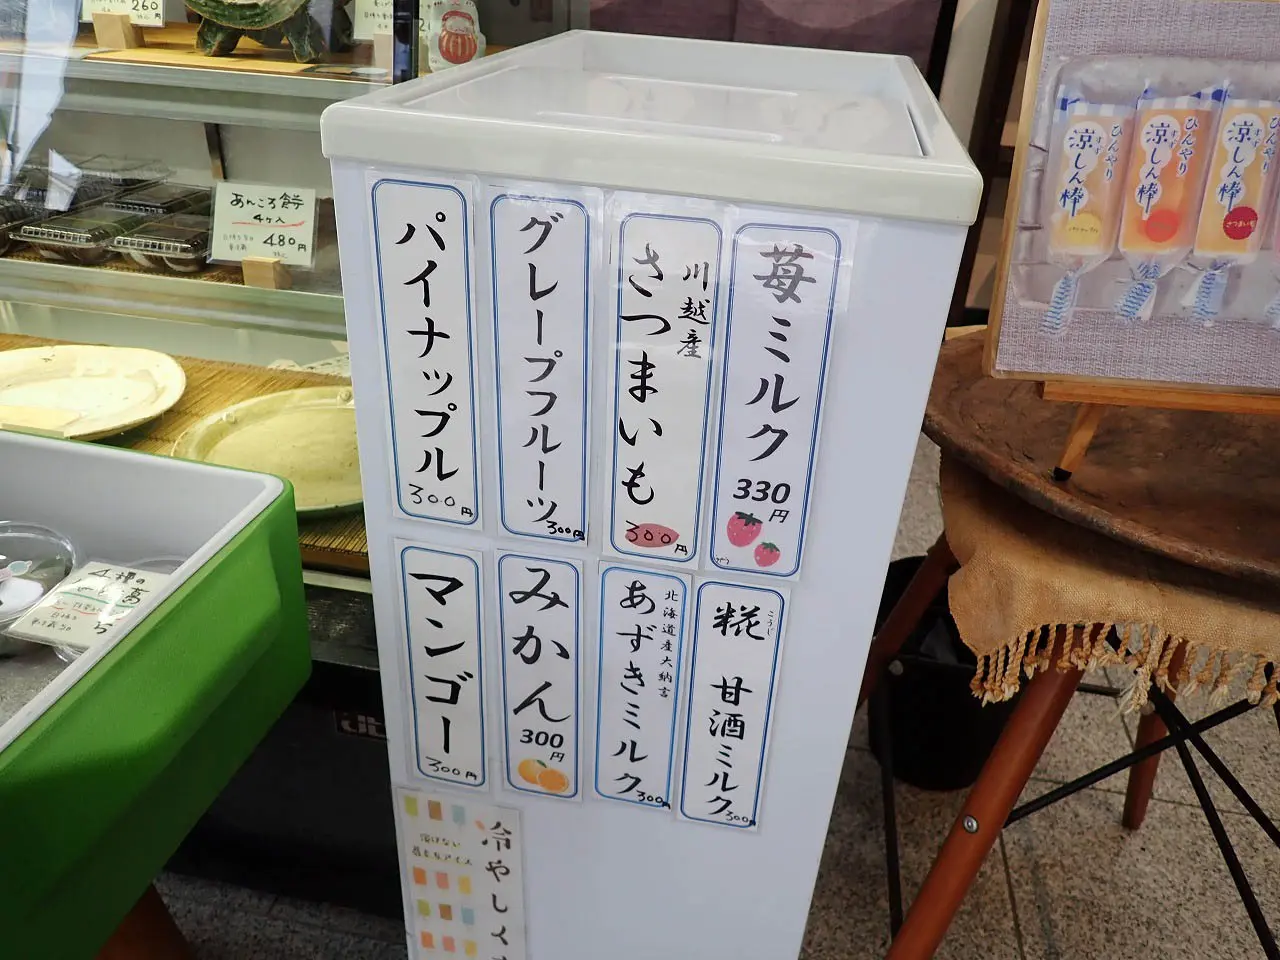 260
円
あんころ餅
4ヶ入
480円
パイナップル
300円
グレープフルーツ
300円
川越産
さつまいも
300円
苺ミルク
330円
マンゴー
300円
みかん
300円
北海道産大納言
あずきミルク
300円
こうじ
糀 甘酒ミルク
300円
冷やしく
溶けない
ひんやり
涼しん棒
すず
ひんやり
涼しん棒
すず
ひんやり
涼しん棒
すず
さつまいも
4種の